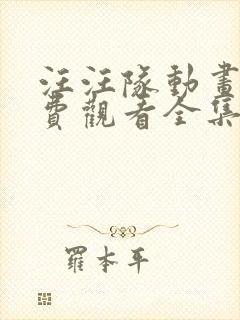 汪汪隊動畫
費觀看全集
羅本平